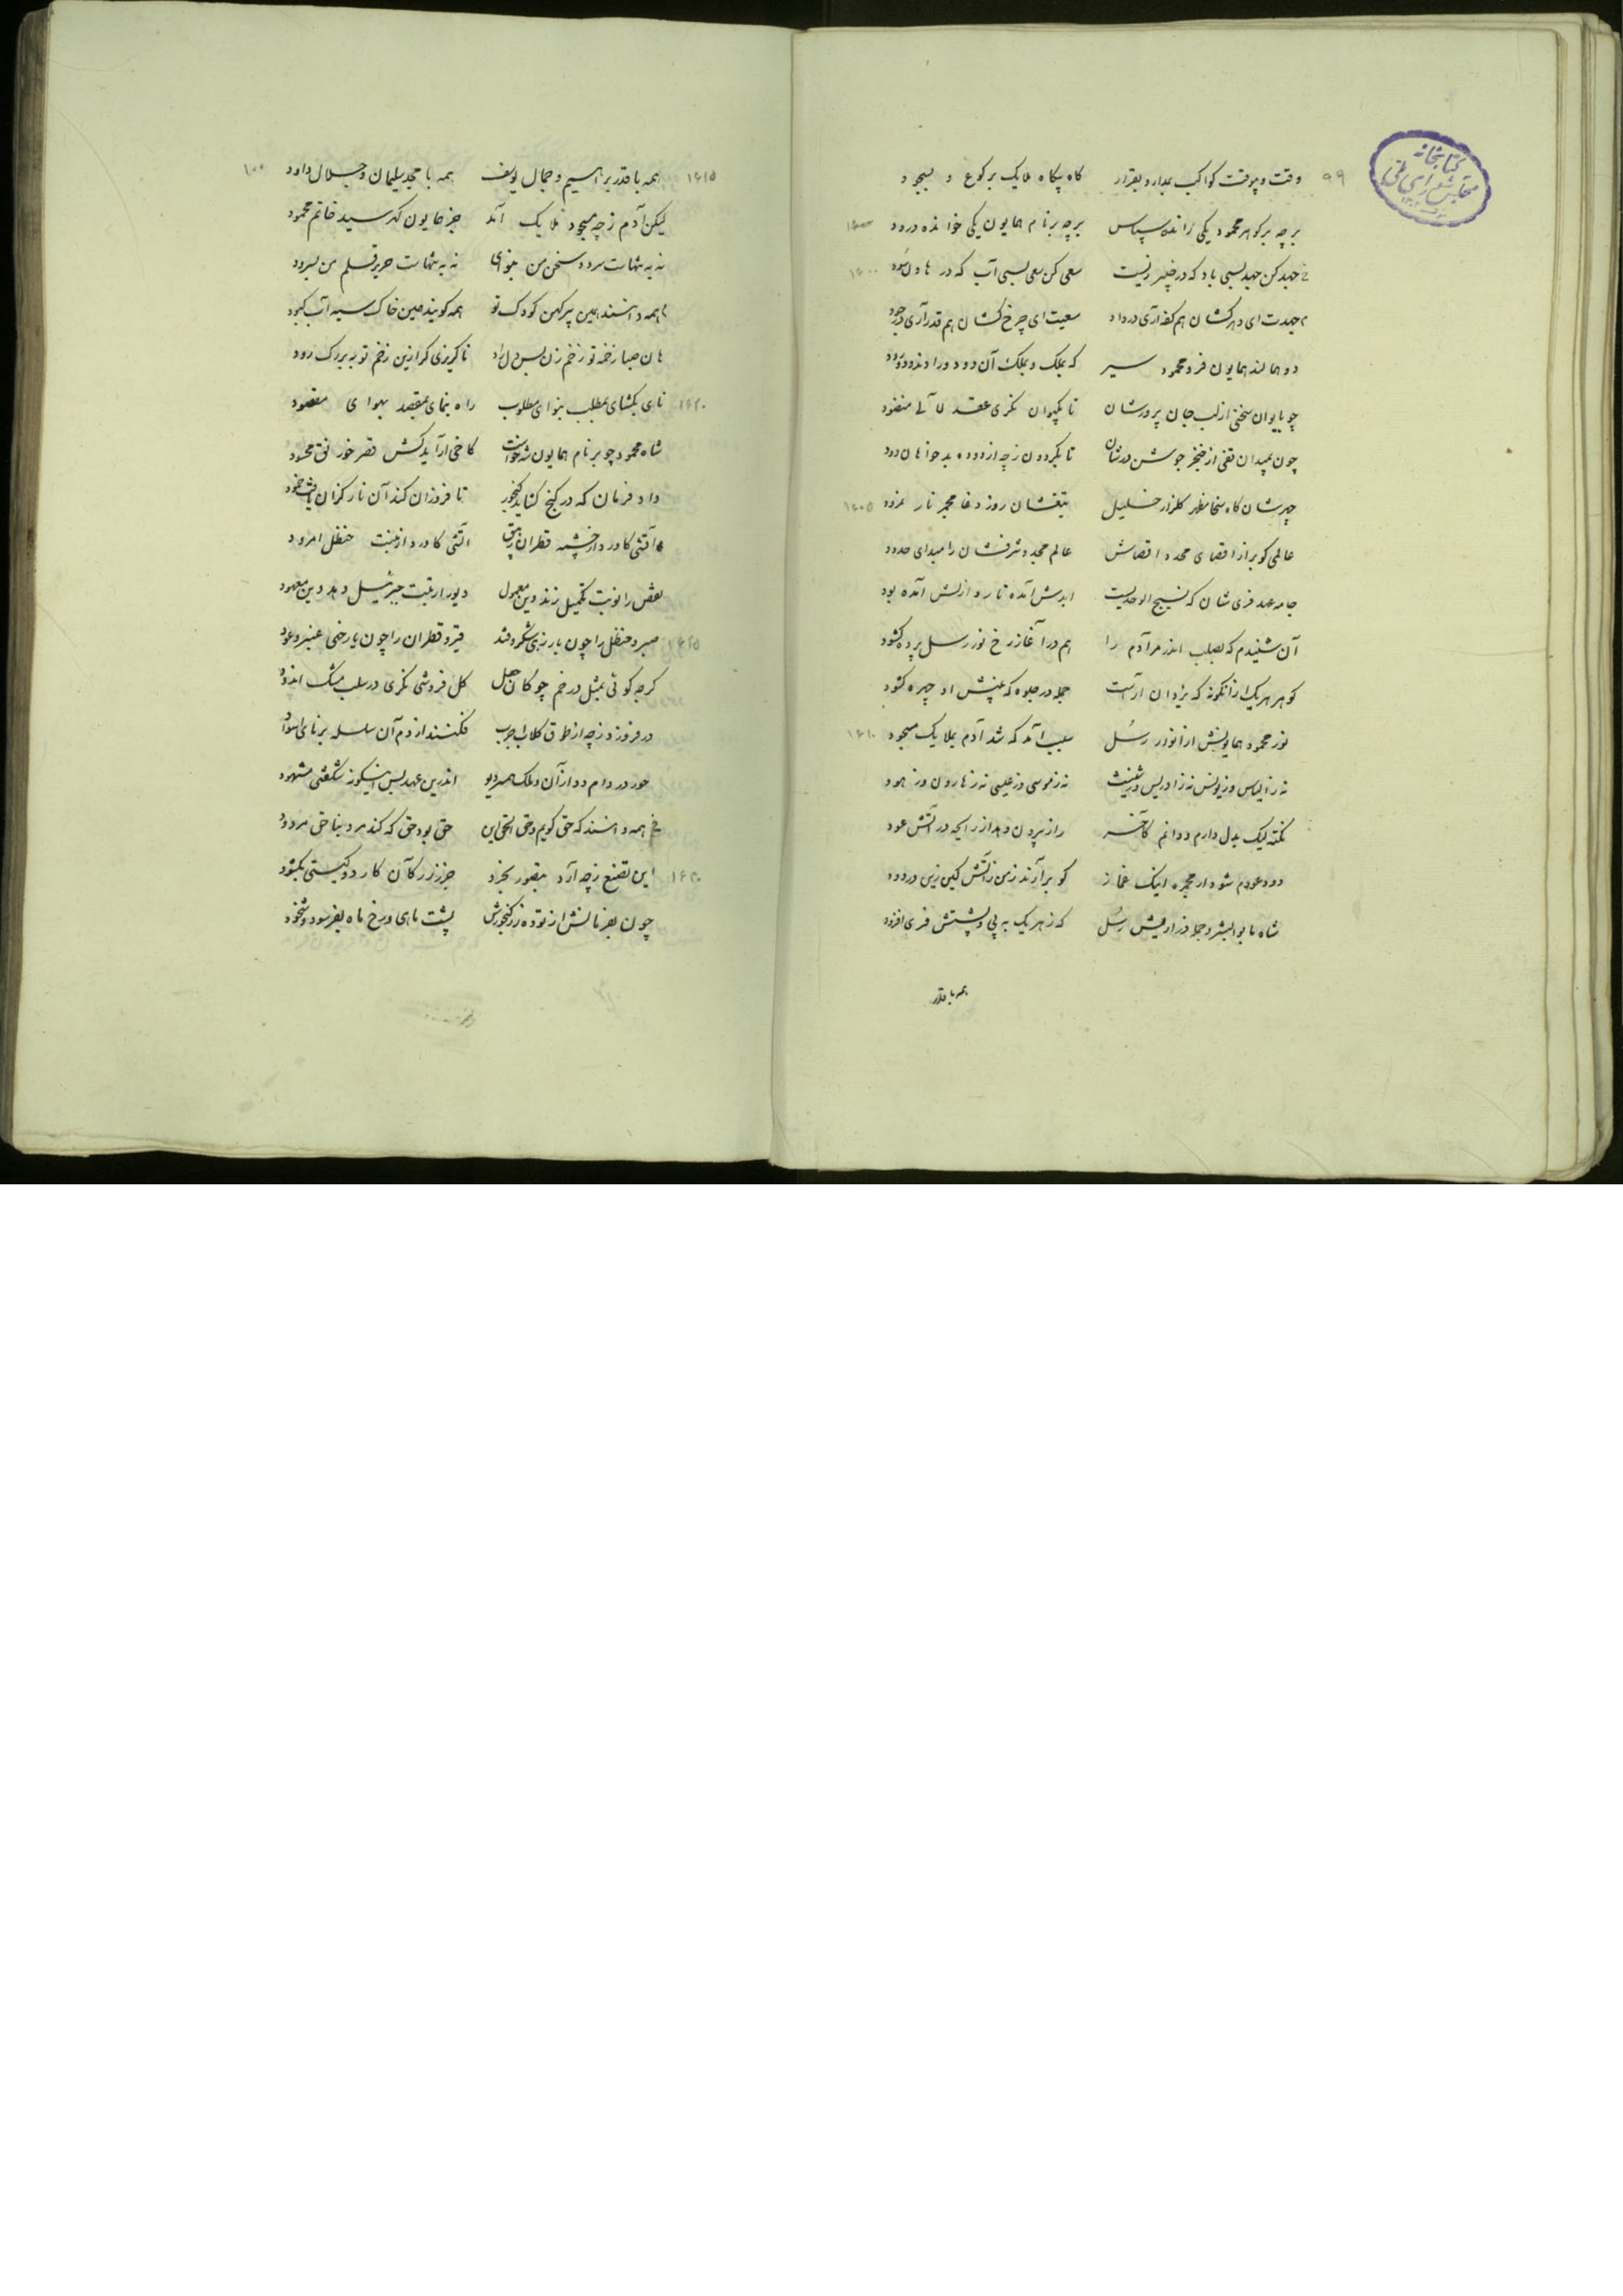 کتابخانه مجلس شورای ملی
۹۹
وقت و بوقت کواکب بمدار و بقرار کاه بیکاه ملایک برکوع و بسجود
بر چه بر کوهر محمود یکی رانده سپاس بر چه بر نام همایون یکی خوانده درود
جهد کن جهد بسی باد که در چنبر نیست سعی کن سعی بسی آب که در هاون سود
جهدت ای دهر کشان هم کفه آری در داد سعیت ای چرخ کشان هم قدر آری در جود
دو همالند همایون فر و محمود سیر که بملک و بملک آن دو
چو بایوان سخن از لب جان پرورشان تا بکیوان نکری عقد لآلی منضود
چون بمیدان تفی از خنجر جوشن درشان تا بکردون زچه از دوده بدخواهان دود
چهرشان کاه سخا مظهر کلزار خلیل تیغشان روز وغا مجمر نار نمرود
۱۶۰۵
عالمی کو بر از اقصای محدد اقصاش عالم مجد و شرفشان را مبدای حدود
جامه عهد فری شان که نسیج الوحدیست ابدش آمده تار و ازلش آمده پود
آن شنیدم که بصلب اندر مر آدم را هم در آغاز رخ نور رسل پرده کشود
کوهر هر یک از آنکونه که یزدان آراست جمله در جلوه که بینش او چهره کشود
نور محمود همایونش از انوار رسُل سبب آمد که شد آدم بملایک مسجود
۱۶۱۰
نه ز الیاس و ز یونس نه ز ادریس و ز شیث نه ز موسی و ز عیسی نه ز هارون و ز هود
نکته لیک بدل دارم و دانم کآخر راز بیرون دهد از رایحه در آتش عود
دود عودم شود از مجمره اینک غماز کو برآرند ز من زآتش کین زین در دود
شاه با بوالبشر و جمله ز رادیش رسُل که ز هر یک به پی و پشتش فری افزود
همه با قدر
۱۰۰
همه با قدر براهیم و جمال یوسف همه با مجد سلیمان و جلال داود
۱۶۱۵
لیکن آدم زچه مسجود ملایک آمد جز همایون کهر سید خاتم محمود
نه به تنهات سرود سخن من بنوای نه به تنهات صریر قلم من بسرود
همه دانستند همین پیر کهن کودک تو همه کویند همین خاک سیه آب کبود
هان صبا زخمه تو زخم زن بس دل راد ناکریزی کر ازین زخم تو به بر رک رود
نای بکشای بمطلب بنوای مطلوب راه بنمای بمقصد بهوای مقصود
۱۶۲۰
شاه محمود چو بر نام همایون شه خواست کاخی آراید کش قصر خورنق محسود
داد فرمان که در کنج کشاید کنجور تا فروزان کند آن نار کزان
آتشی کاورد از چشمه قطران آتشی کاورد از منبت حنظل امرود
نقض را نوبت تکمیل زند وین معمول دیو را رتبت جبریل دهد وین معهود
صبر و حنظل را چون بار رزی شکر و قند قیر و قطران را چون یار خی عنبر و عود
۱۶۲۵
کرچه کوئی بمثل در خم چوکان جعل کل فروشی نکری در سلب مشک اندود
در فروزد زچه از طوق کلاب فکنند از دم آن سلسله بر نای اسود
حور در دام دد از آن و ملک همسر دیو اندرین عهد بس اینکونه شکفتی مشهود
همه دانستند که حق کویم و حق الحق این حق بود حق که کند مرد بنا حق مردود
این تصنع زچه آرد بقصور بخرد جز ز زر کآن کار دو کیتی بکشود
۱۶۳۰
چون بفرمانش از توده زر کنجورش پشت ماهی و رخ ماه بفرسود و شخود